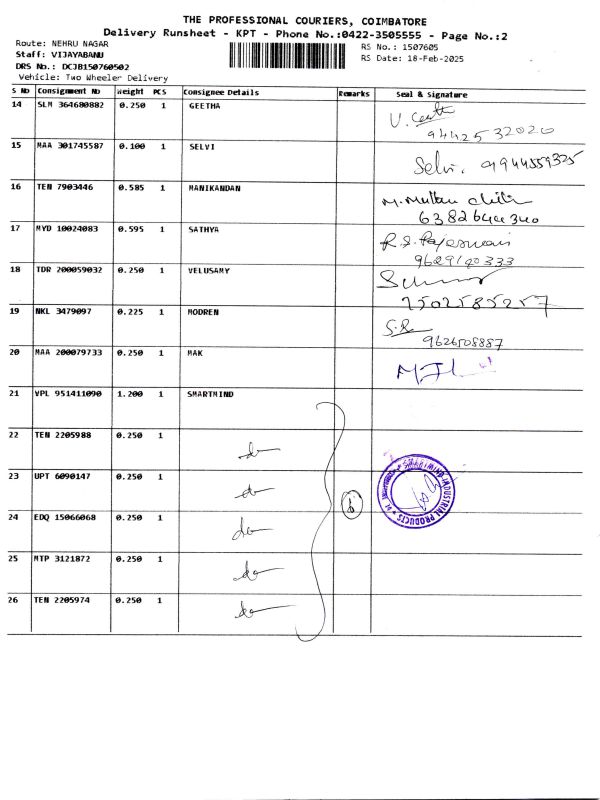 THE PROFESSIONAL COURIERS, COIMBATORE
Delivery Runsheet - KPT - Phone No.:0422-3505555 - Page No.:2
Route: NEHRU NAGAR
RS No.: 1507605
Staff: VIJAYABANU
RS Date: 18-Feb-2025
DRS No.: DCJB150760502
Vehicle: Two Wheeler Delivery
S No Consignment No Weight PCS Consignee Details Remarks Seal & Signature
14 SLM 364680882 0.250 1 GEETHA
9442532020
15 MAA 301745587 0.100 1 SELVI
Selvi. 9944559325
16 TEN 7903446 0.585 1 MANIKANDAN
6382644340
17 MYD 10024083 0.595 1 SATHYA
R.S. Rajeswari
9629190333
18 TDR 200059032 0.250 1 VELUSAMY
7502585257
19 NKL 3479097 0.225 1 MODREN
9626508887
20 MAA 200079733 0.250 1 MAK
21 VPL 951411090 1.200 1 SMARTMIND
22 TEN 2205988 0.250 1 do
23 UPT 6090147 0.250 1 do
SMARTMIND INDUSTRIAL PRODUCTS
24 EDQ 15066068 0.250 1 do
6
25 MTP 3121872 0.250 1 do
26 TEN 2205974 0.250 1 do